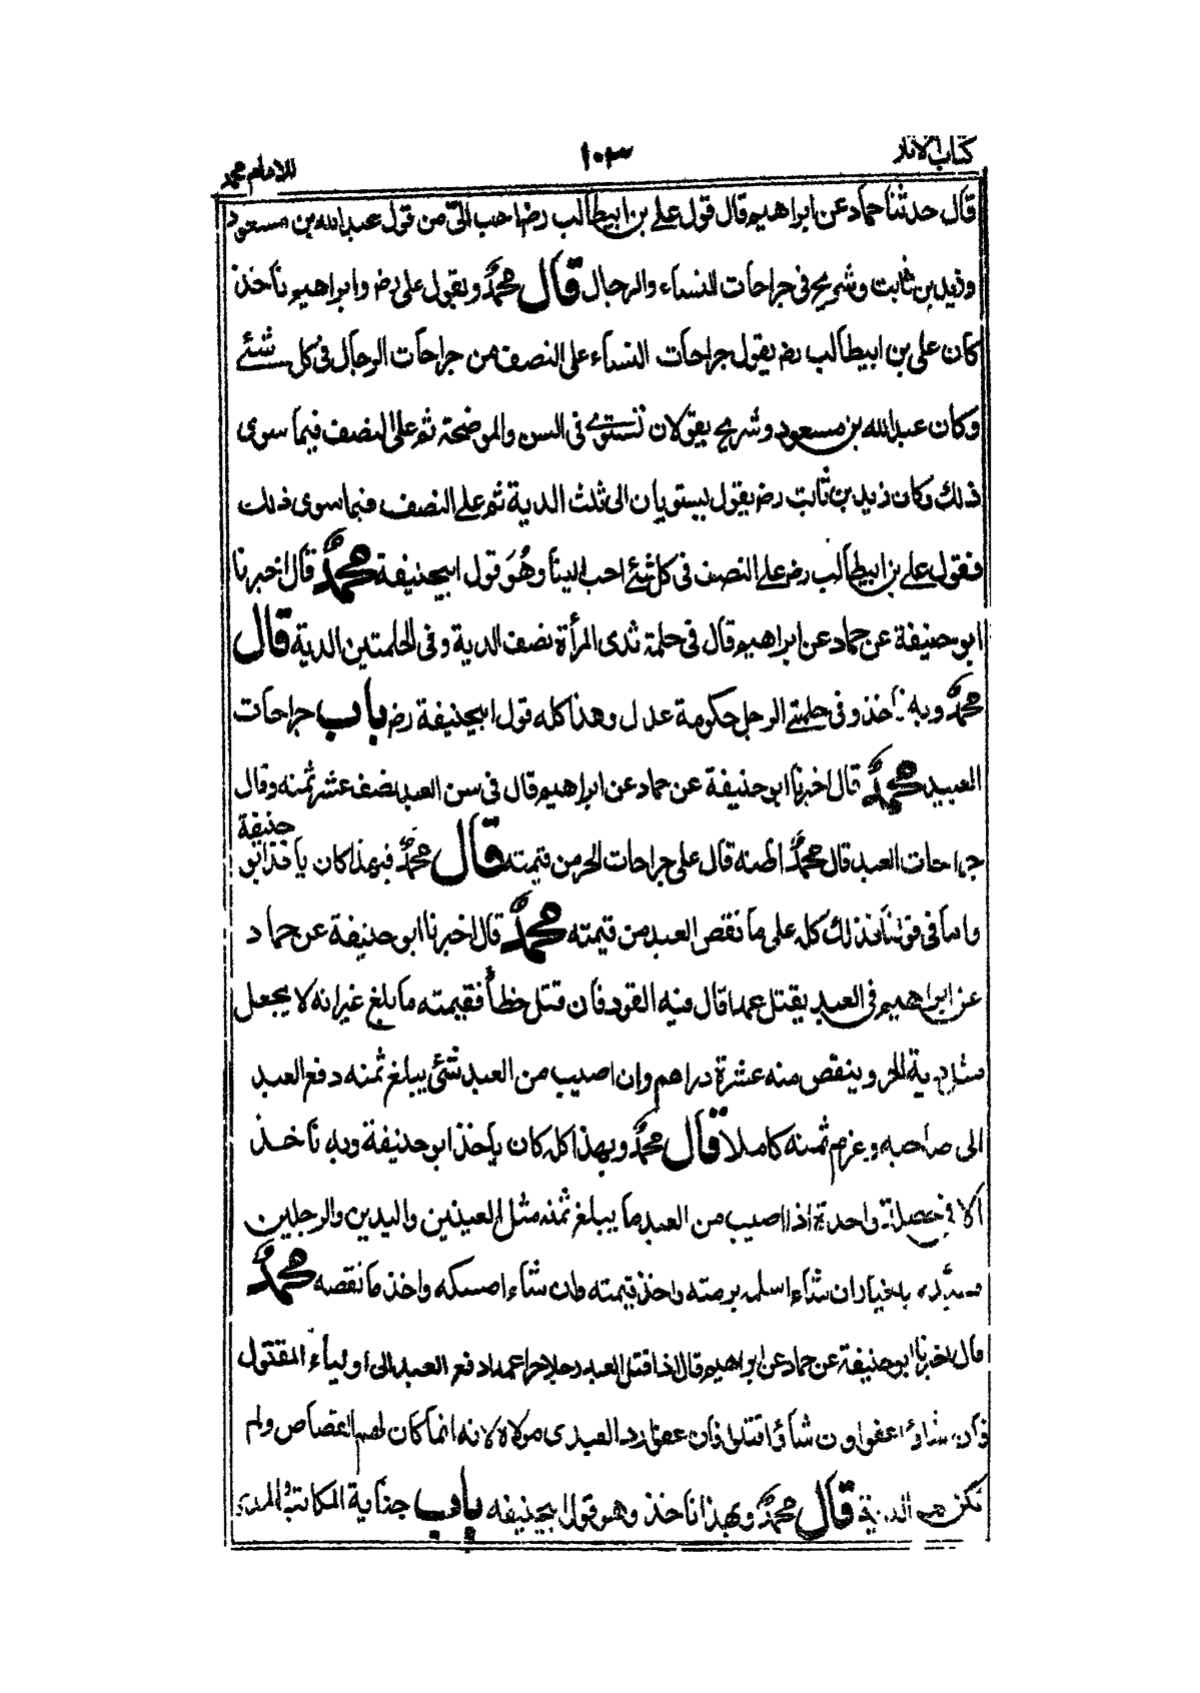 كتاب الآثار
١٠٣
للامام محمد
قال حدثنا حماد عن ابراهيم قال قول علي بن ابيطالب رضـ احب الىّ من قول عبد الله بن مسعود
وزيد بن ثابت وشريح فى جراحات النساء والرجال قال محمد وبقول على رضـ وابراهيم نأخذ
كان على بن ابيطالب رضـ يقول جراحات النساء على النصف من جراحات الرجال فى كل شئے
وكان عبد الله بن مسعود وشريح يقولان تستوے فى السن والموضحة ثم على النصف فيما سوى
ذلك وكان زيد بن ثابت رضـ يقول يستويان الى ثلث الدية ثم علے النصف فيما سوى ذلك
فقول علے بن ابيطالب رضـ علے النصف فى كل شئے احب الينا وهُوَ قول ابيحنيفة محمد قال اخبرنا
ابو حنيفة عن حماد عن ابراهيم قال فى حلمة ثدى المرأة نصف الدية وفى الحلمتين الدية قال
محمد وبه نأخذ وفى حلمتے الرجل حكومة عدل وهذا كله قول ابيحنيفة رضـ باب جراحات
العبيد محمد قال اخبرنا ابو حنيفة عن حماد عن ابراهيم قال فى سن العبد نصف عشر ثمنه وقال
جراحات العبد قال محمد اظنه قال على جراحات الحر من قيمته قال محمد فبهذا كان يأخذ ابو حنيفة
واما فى قولنا فذلك كله على ما نقص العبد من قيمته محمد قال اخبرنا ابو حنيفة عن حماد
عن ابراهيم فى العبد يقتل عمدا قال فيه القود فان قتل خطأ فقيمته ما بلغ غير انه لا يجعل
مثل دية الحر وينقص منه عشرة دراهم وان اصيب من العبد شئ يبلغ ثمنه دفع العبد
الى صاحبه وغرم ثمنه كاملا قال محمد وبهذا كله كان يأخذ ابو حنيفة وبه نأخذ
الا فى خصلة واحدة اذا اصيب من العبد ما يبلغ ثمنه مثل العينين واليدين والرجلين
فسيده بالخيار ان شاء اسلمه برمته واخذ قيمته وان شاء امسكه واخذ ما نقصه محمد
قال اخبرنا ابو حنيفة عن حماد عن ابراهيم قال اذا قتل العبد رجلا حرا عمدا دفع العبد الى اولياء المقتول
فان شاؤا عفوا وان شاؤا قتلوا فان عفوا رد العبد الى مولاه لانه انما كان لهم القصاص ولم
تكن لهم الدية قال محمد وبهذا نأخذ وهو قول ابيحنيفه باب جناية المكاتب والمدبر